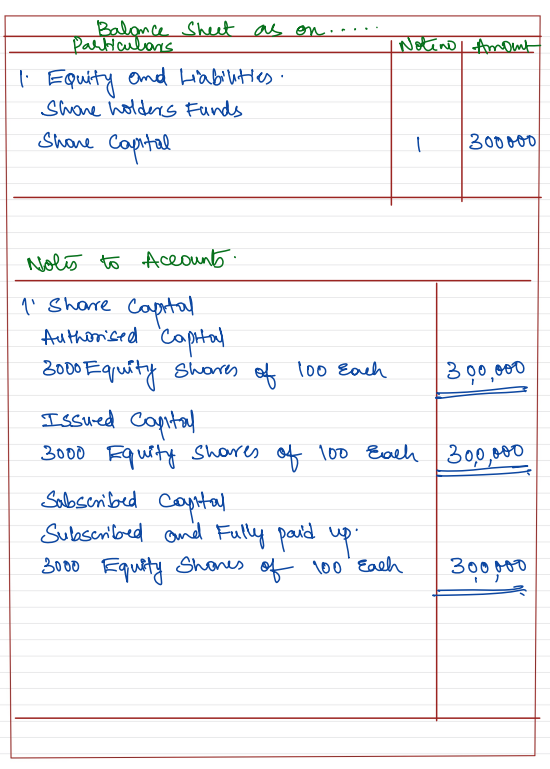 Balance Sheet as on.....
Particulars Note no Amount
1. Equity and Liabilities.
Share holders Funds
Share Capital 1 300000
Notes to Accounts.
1. Share Capital
Authorised Capital
3000 Equity Shares of 100 Each 300,000
Issued Capital
3000 Equity Shares of 100 Each 300,000
Subscribed Capital
Subscribed and Fully paid up.
3000 Equity Shares of 100 Each 300,000